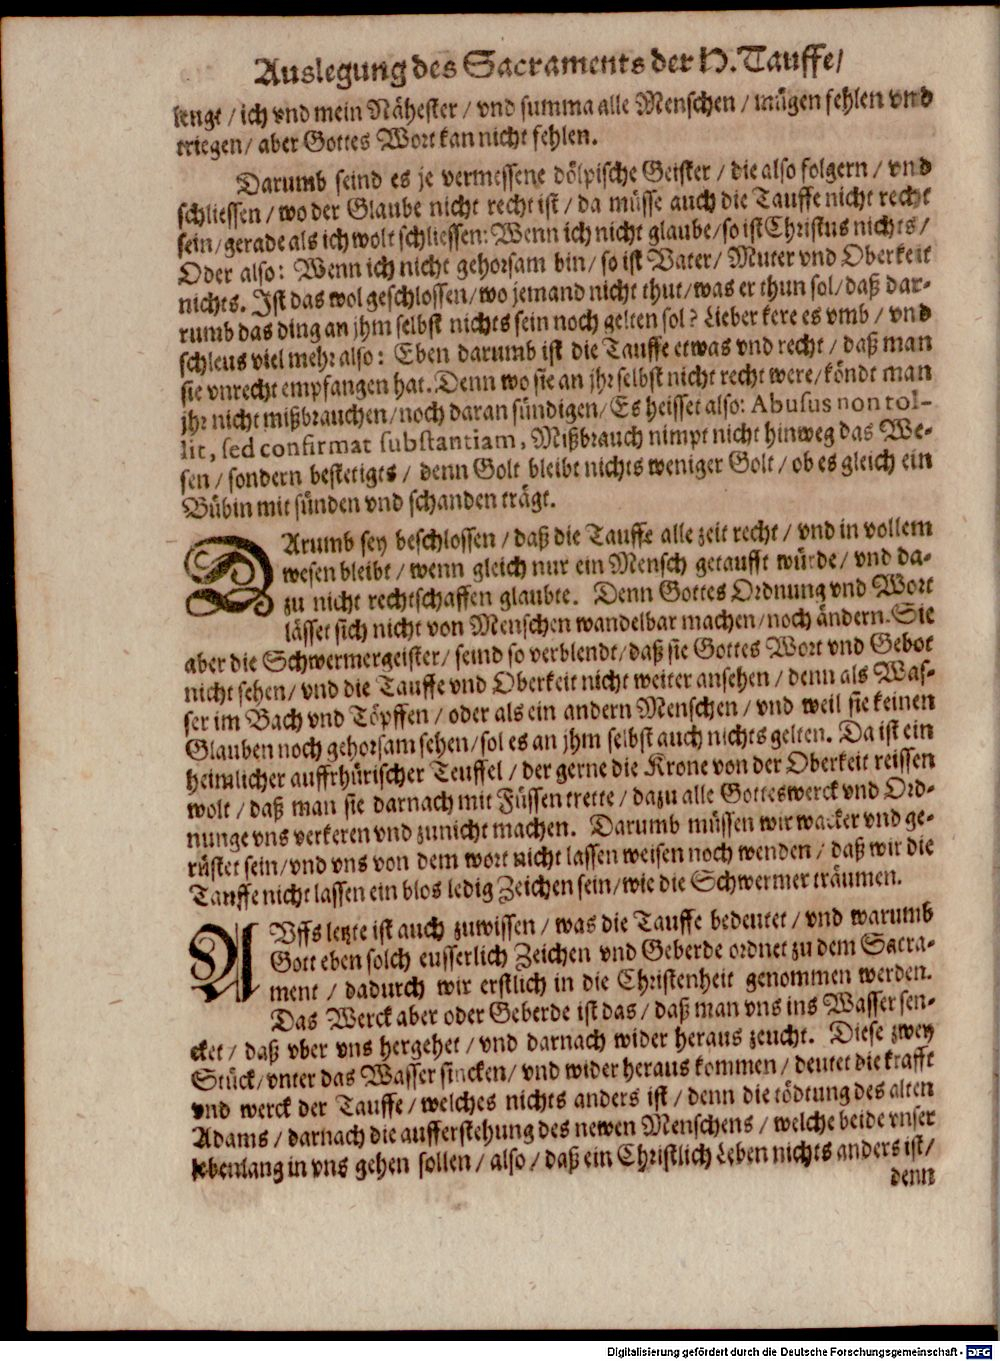 Auslegung des Sacraments der H. Tauffe/
lengt / ich vnd mein Nähester / vnd summa alle Menschen / mügen fehlen vnd
triegen / aber Gottes Wort kan nicht fehlen.
Darumb seind es je vermessene dölpische Geister / die also folgern / vnd
schliessen / wo der Glaube nicht recht ist / da müsse auch die Tauffe nicht recht
sein / gerade als ich wolt schliessen: Wenn ich nicht glaube / so ist Christus nichts /
Oder also: Wenn ich nicht gehorsam bin / so ist Vater / Muter vnd Oberkeit
nichts. Ist das wol geschlossen / wo jemand nicht thut / was er thun sol / daß dar-
rumb das ding an jhm selbst nichts sein noch gelten sol? Lieber kere es vmb / vnd
schleus viel mehr also: Eben darumb ist die Tauffe etwas vnd recht / daß man
sie vnrecht empfangen hat. Denn wo sie an jhr selbst nicht recht were / köndt man
jhr nicht mißbrauchen / noch daran sündigen / Es heisset also: Abusus non tol-
lit, sed confirmat substantiam, Mißbrauch nimpt nicht hinweg das We-
sen / sondern bestetigts / denn Golt bleibt nichts weniger Golt / ob es gleich ein
Bübin mit sünden vnd schanden trägt.
DArumb sey beschlossen / daß die Tauffe alle zeit recht / vnd in vollem
wesen bleibt / wenn gleich nur ein Mensch getaufft würde / vnd da-
zu nicht rechtschaffen glaubte. Denn Gottes Ordnung vnd Wort
lässet sich nicht von Menschen wandelbar machen / noch ändern. Sie
aber die Schwermergeister / seind so verblendt / daß sie Gottes Wort vnd Gebot
nicht sehen / vnd die Tauffe vnd Oberkeit nicht weiter ansehen / denn als Was-
ser im Bach vnd Töpffen / oder als ein andern Menschen / vnd weil sie keinen
Glauben noch gehorsam sehen / sol es an jhm selbst auch nichts gelten. Da ist ein
heimlicher auffrhürischer Teuffel / der gerne die Krone von der Oberkeit reissen
wolt / daß man sie darnach mit Füssen trette / dazu alle Gotteswerck vnd Ord-
nunge vns verkeren vnd zunicht machen. Darumb müssen wir wacker vnd ge-
rüstet sein / vnd vns von dem wort nicht lassen weisen noch wenden / daß wir die
Tauffe nicht lassen ein blos ledig Zeichen sein / wie die Schwermer träumen.
AVffs letzte ist auch zuwissen / was die Tauffe bedeutet / vnd warumb
Gott eben solch eusserlich Zeichen vnd Geberde ordnet zu dem Sacra-
ment / dadurch wir erstlich in die Christenheit genommen werden.
Das Werck aber oder Geberde ist das / daß man vns ins Wasser sen-
cket / daß vber vns hergehet / vnd darnach wider heraus zeucht. Diese zwey
Stück / vnter das Wasser sincken / vnd wider heraus kommen / deutet die krafft
vnd werck der Tauffe / welches nichts anders ist / denn die tödtung des alten
Adams / darnach die aufferstehung des newen Menschens / welche beide vnser
lebenlang in vns gehen sollen / also / daß ein Christlich Leben nichts anders ist /
denn
Digitalisierung gefördert durch die Deutsche Forschungsgemeinschaft - DFG